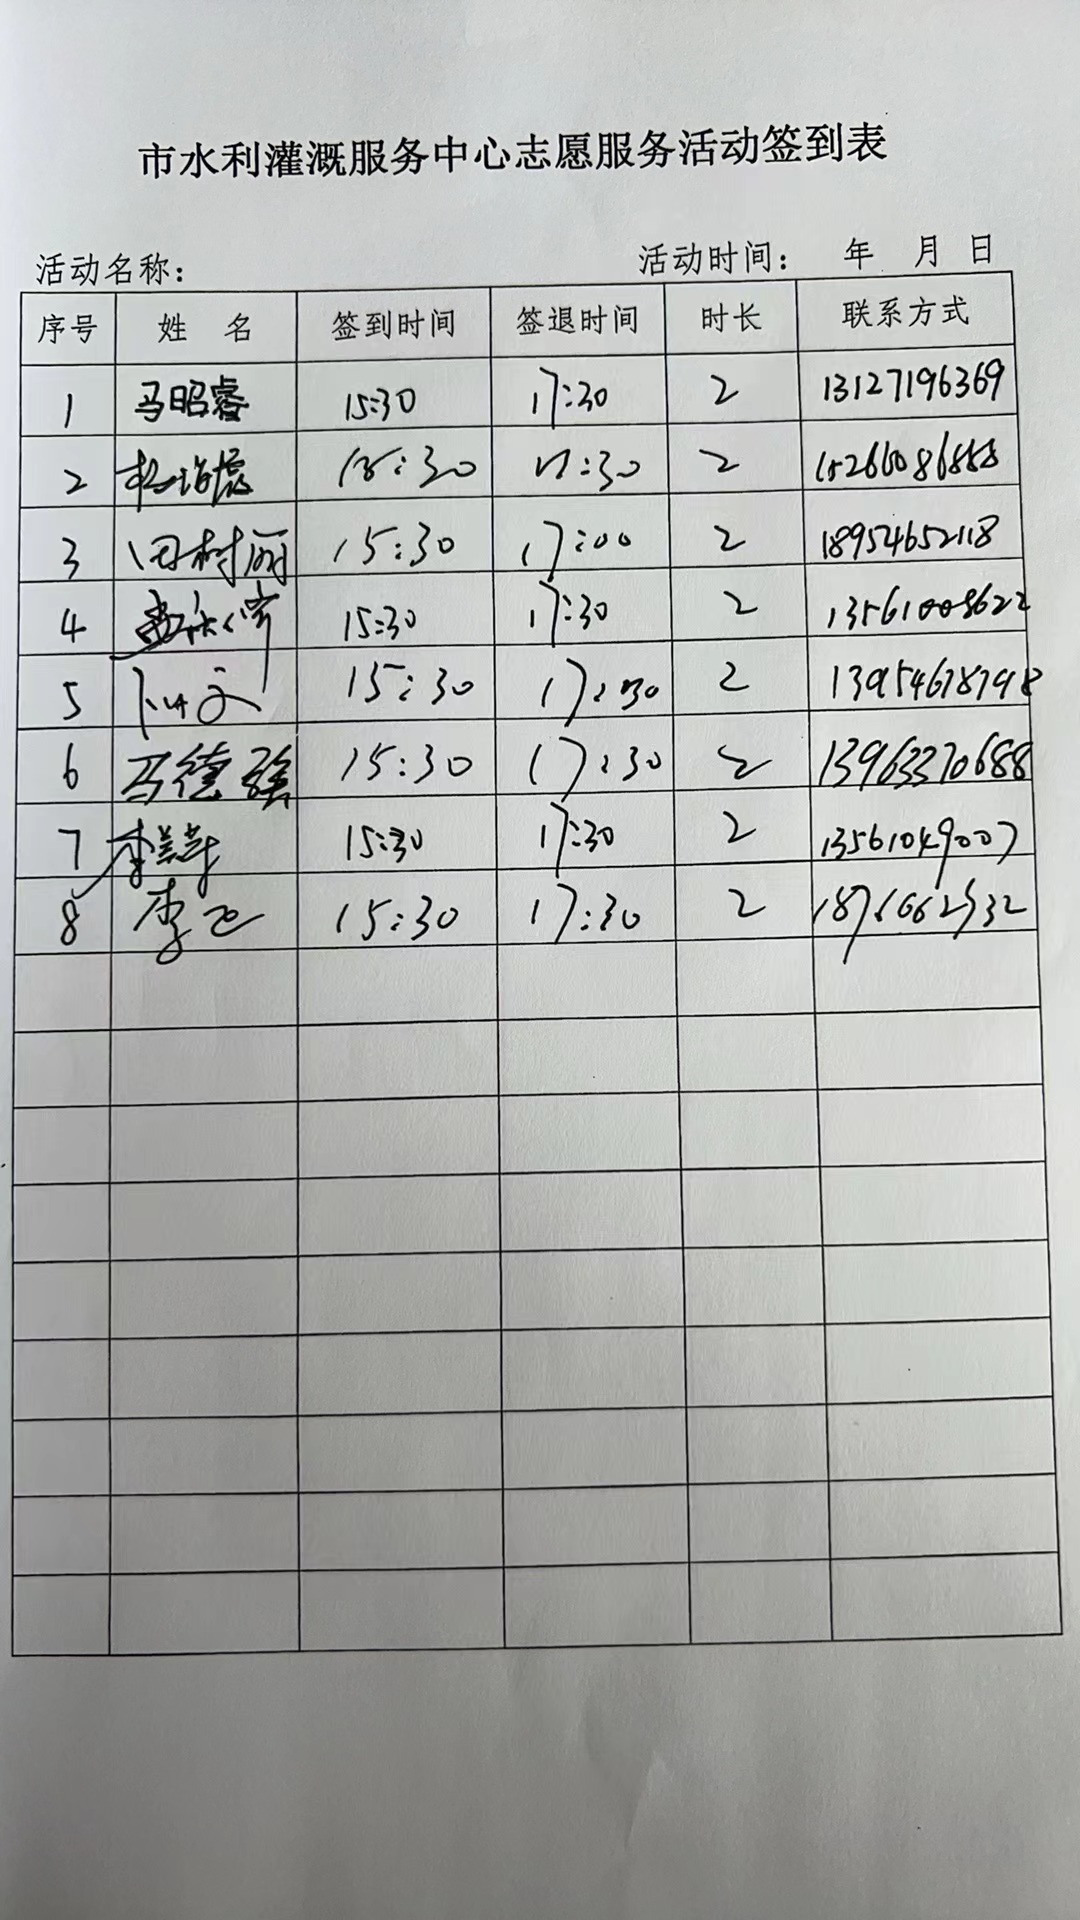 市水利灌溉服务中心志愿服务活动签到表
活动名称： 活动时间： 年 月 日
序号 姓 名 签到时间 签退时间 时长 联系方式
1 马昭睿 15:30 17:30 2 13127196369
2 15:30 17:30 2 15266086888
3 田树丽 15:30 17:00 2 18954652118
4 15:30 17:30 2 13561008622
5 15:30 17:30 2 13954678798
6 马德强 15:30 17:30 2 13963370688
7 李美萍 15:30 17:30 2 13561049007
8 李飞 15:30 17:30 2